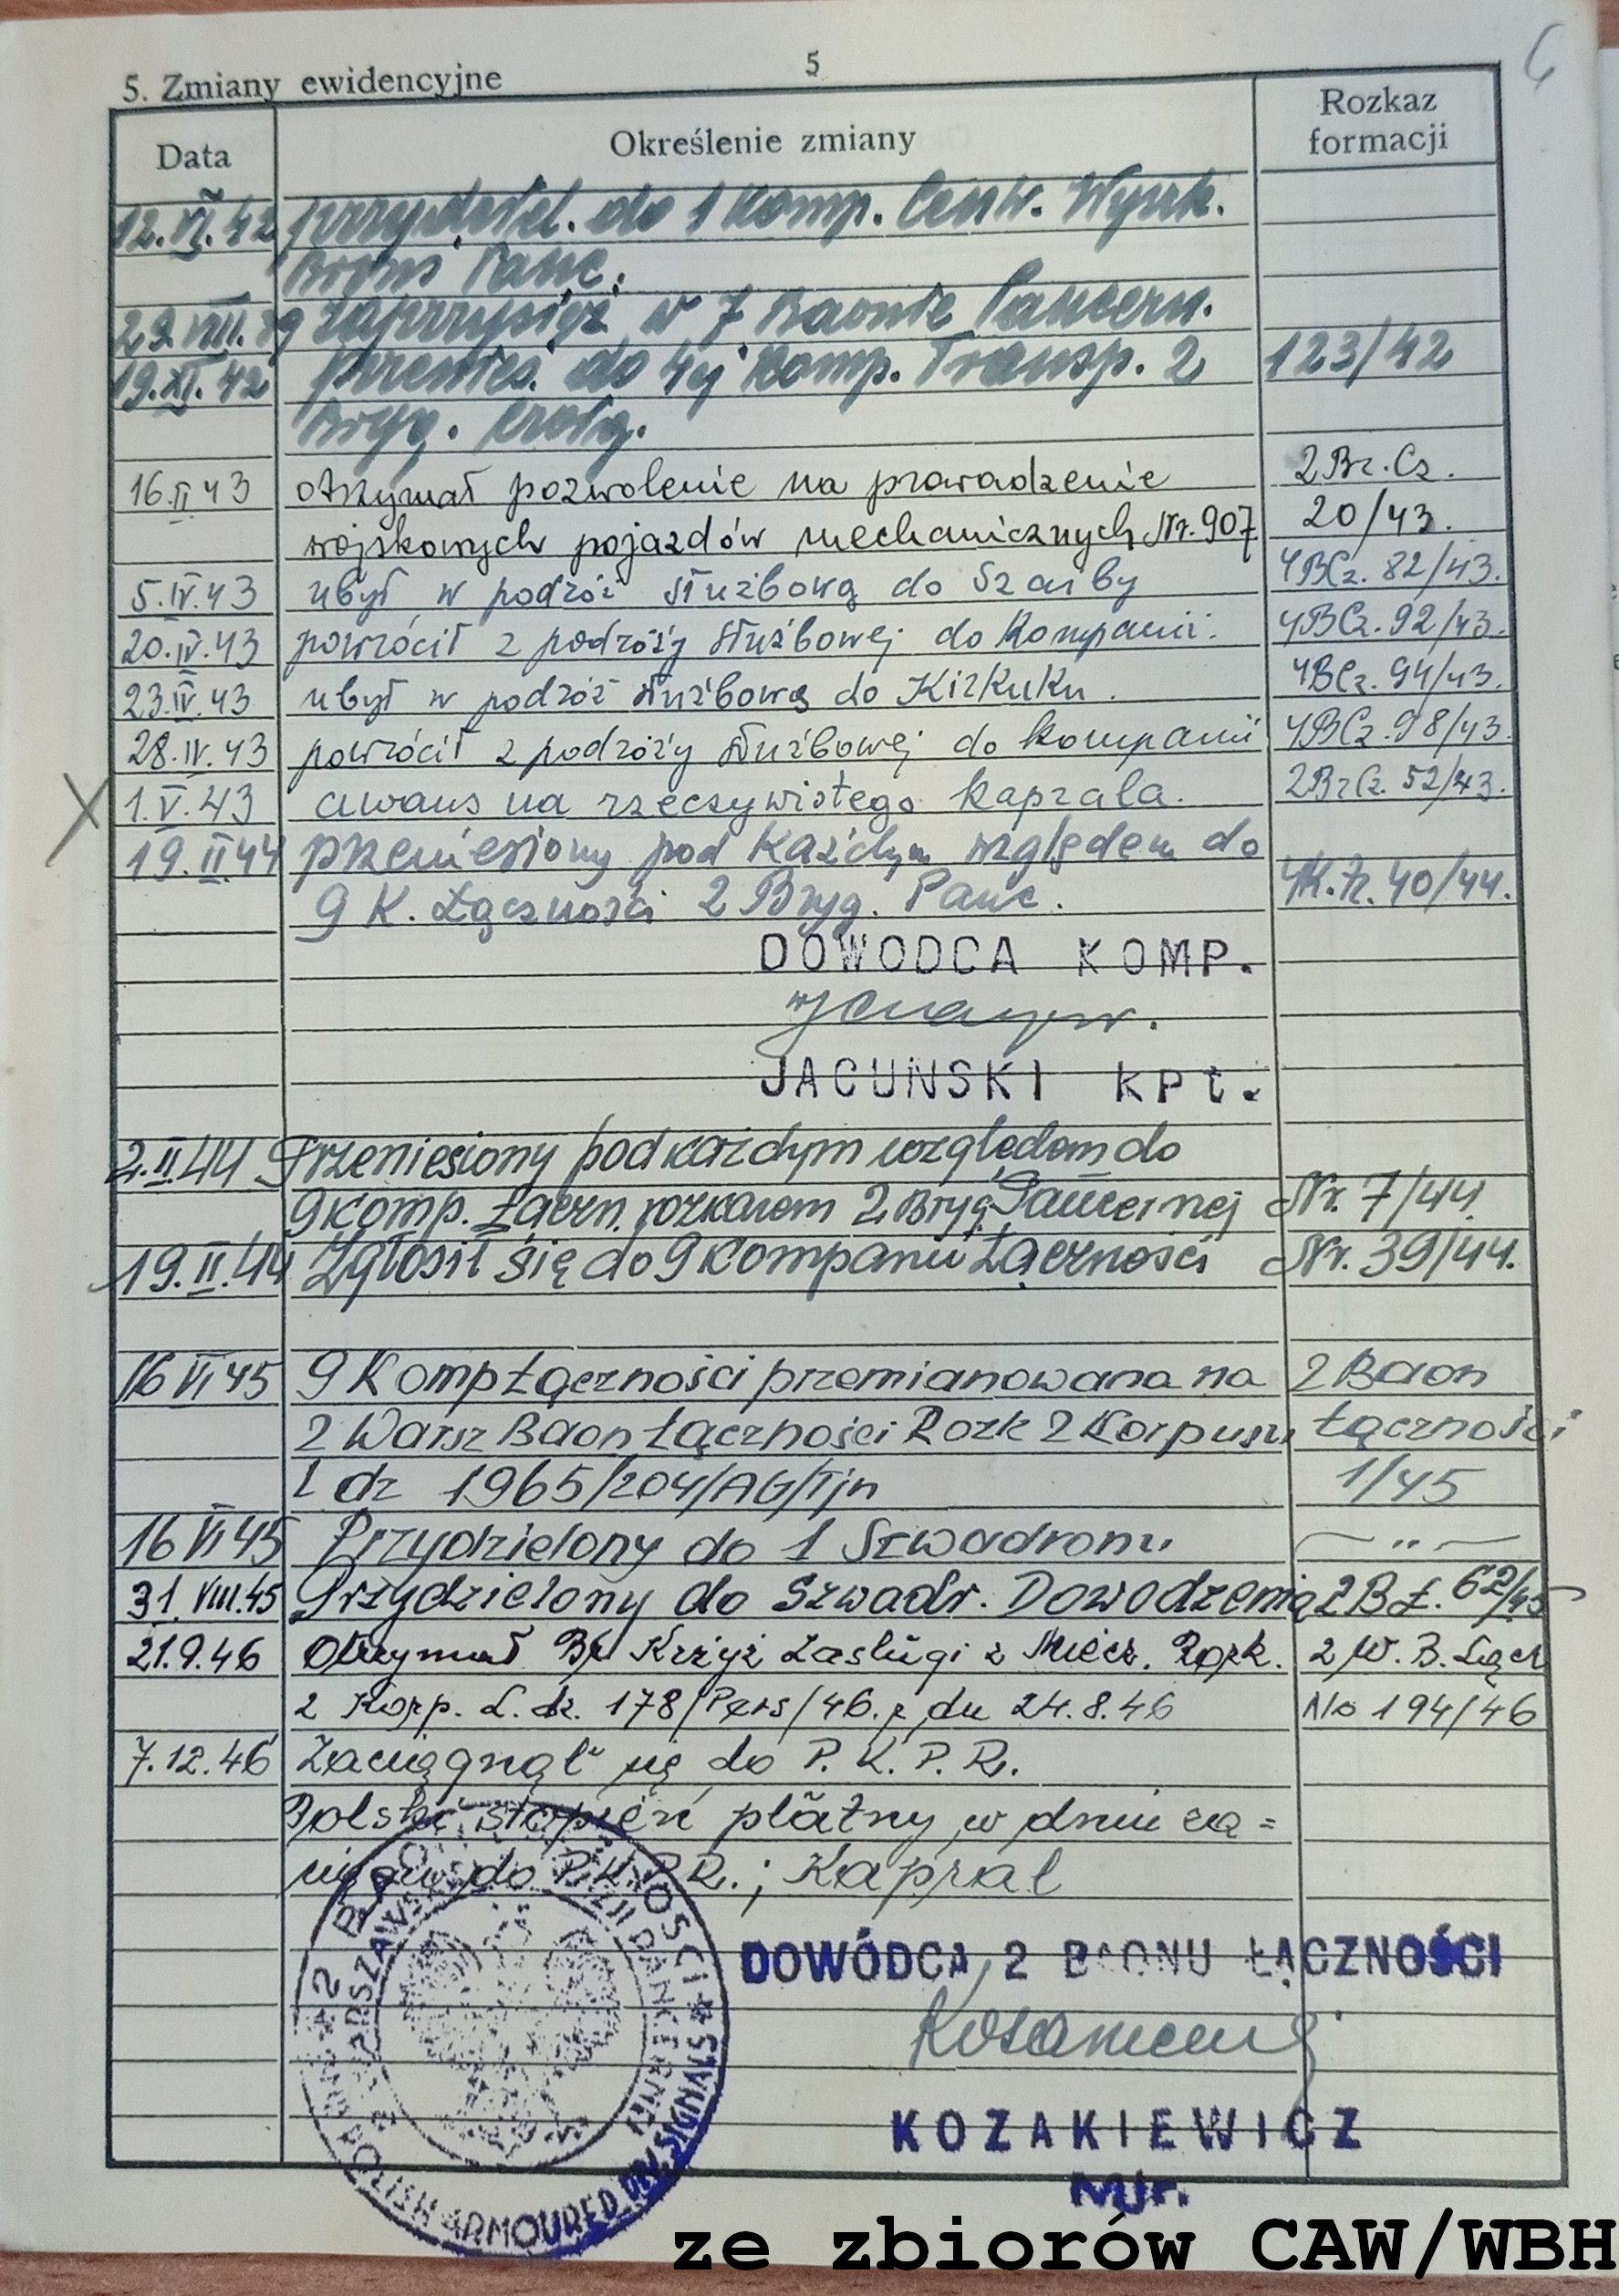 5
5. Zmiany ewidencyjne
Data Określenie zmiany Rozkaz formacji
12.XI.42 przydziel. do 1 Komp. Centr. Wyszk.
Broni Panc.
29.VIII.39 zaprzysięż. w 7 Baonie Pancern.
19.XI.42 przenies. do 4ej Komp. Transp. 2 123/42
Bryg. Czołg.
16.II.43 otrzymał pozwolenie na prowadzenie 2 Br. Cz.
wojskowych pojazdów mechanicznych Nr. 907 20/43.
5.IV.43 ubył w podróż służbową do 4BCz. 82/43.
20.IV.43 powrócił z podróży służbowej do Kompanii. 4BCz. 92/43.
23.IV.43 ubył w podróż służbową do Kirkuku. 4BCz. 94/43.
28.IV.43 powrócił z podróży służbowej do kompanii 4BCz. 98/43.
1.V.43 awans na rzeczywistego kaprala. 2BrCz. 52/43.
19.II.44 przeniesiony pod każdym względem do
9 K. Łączności 2 Bryg. Panc. 40/44.
DOWODCA KOMP.
JACUNSKI kpt.
2.II.44 Przeniesiony pod każdym względem do
9 Komp. Łączn. rozkazem 2 Bryg. Pancernej Nr. 7/44
19.II.44 Zgłosił się do 9 Kompanii Łączności Nr. 39/44.
16 VI 45 9 Komp Łączności przemianowana na 2 Baon
2 Warsz Baon Łączności Rozk 2 Korpusu Łączności
L dz 1965/204/AG/Tjn 1/45
16 VI 45 Przydzielony do 1 Szwadronu — " —
31.VIII.45 Przydzielony do Szwadr. Dowodzenia 2 B Ł. 62/45
21.9.46 Otrzymał Br Krzyż Zasługi z Miecz. Rozk. 2 W. B. Łącz
2 Korp. L. dz. 178/Pers/46. z dn 24.8.46 No 194/46
7.12.46 Zaciągnął się do P.K.P.R.
Polski stopień płatny w dniu zą=
do P.K.P.R.; Kapral
DOWÓDCA 2 BAONU ŁĄCZNOŚCI
KOZAKIEWICZ
Mjr.
2 BAON ŁĄCZNOŚCI
2 WARSZAWSKIEJ DYWIZJI PANCERNEJ
POLISH ARMOURED DIV. SIGNALS
ze zbiorów CAW/WBH